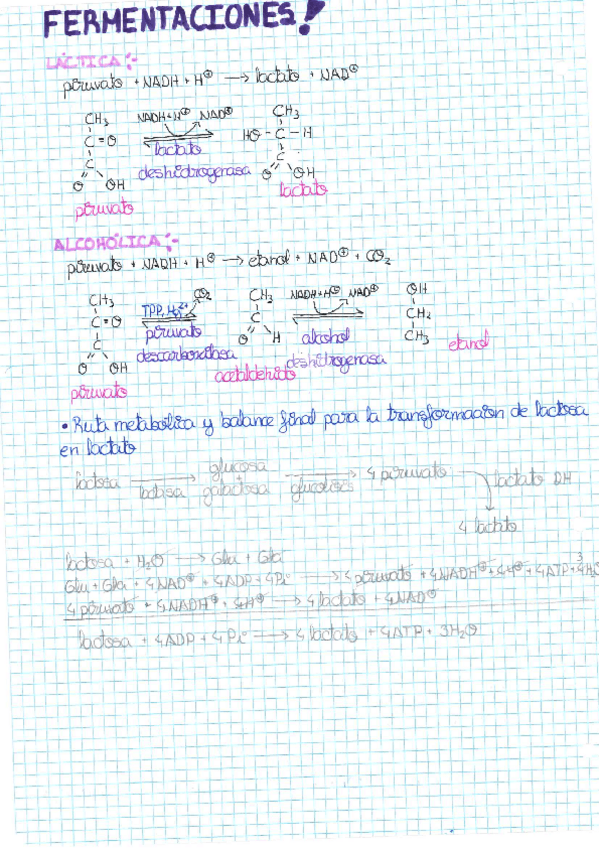 FERMENTACIONES!
LÁCTICA:-
piruvato + NADH + H⊕ → lactato + NAD⊕
CH₃ NADH+H⊕ NAD⊕ CH₃
C=O HO - C - H
lactato
C deshidrogenasa C
O OH O OH
piruvato lactato
ALCOHÓLICA:-
piruvato + NADH + H⊕ → etanol + NAD⊕ + CO₂
CH₃ CO₂ CH₃ NADH+H⊕ NAD⊕ OH
C=O TPP, C CH₂
C piruvato O H alcohol CH₃
O OH descarboxilasa deshidrogenasa etanol
piruvato acetaldehido
• Ruta metabólica y balance final para la transformación de lactosa
en lactato
lactosa → lactasa glucosa galactosa → glucólisis 4 piruvato lactato DH
4 lactato
lactosa + H₂O → Glu + Gla
Glu + Gla + 4NAD⊕ + 4ADP + 4Pi → 4 piruvato + 4NADH⊕ + 4H⊕ + 4ATP +
4 piruvato + 4NADH⊕ + 4H⊕ → 4 lactato + 4NAD⊕
lactosa + 4ADP + 4Pi → 4 lactato + 4ATP + 3H₂O